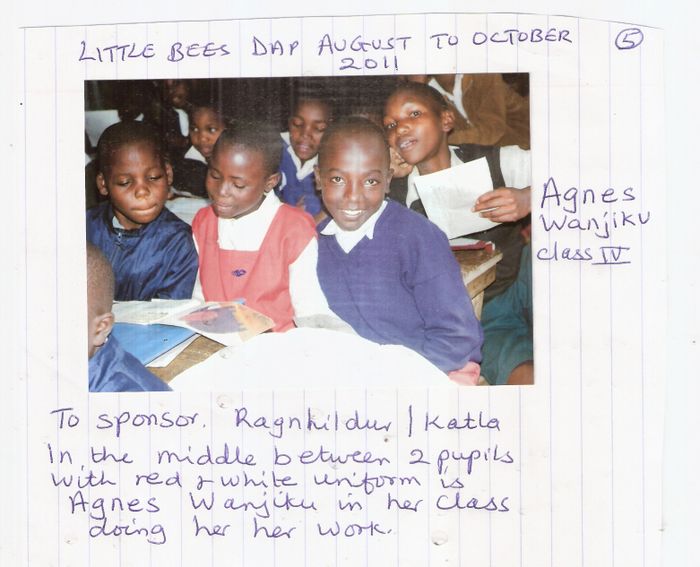 LITTLE BEES DAP AUGUST TO OCTOBER
2011
5
Agnes
Wanjiku
class IV
To sponsor. Ragnhildur / Katla
In the middle between 2 pupils
with red & white uniform is
Agnes Wanjiku in her class
doing her her work.